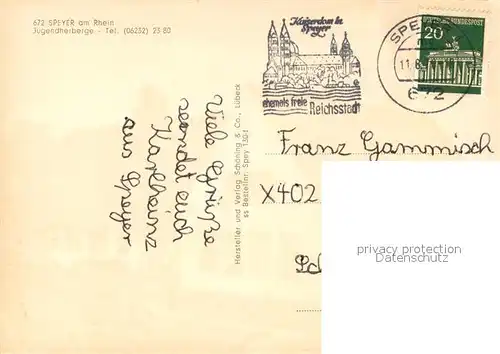 672 SPEYER am Rhein
Jugendherberge - Tel. (06232) 23 80
Kaiserdom in
Speyer
ehemals freie Reichsstadt
SPEY
11.8.
672
20
DEUTSCHE BUNDESPOST
Viele Grüße
sendet euch
Karlheinz
aus Speyer
Hersteller und Verlag Schöning & Co., Lübeck
ss Bestellnr. Spey 130-I
Franz Gammisch
X402
privacy protection
Datenschutz